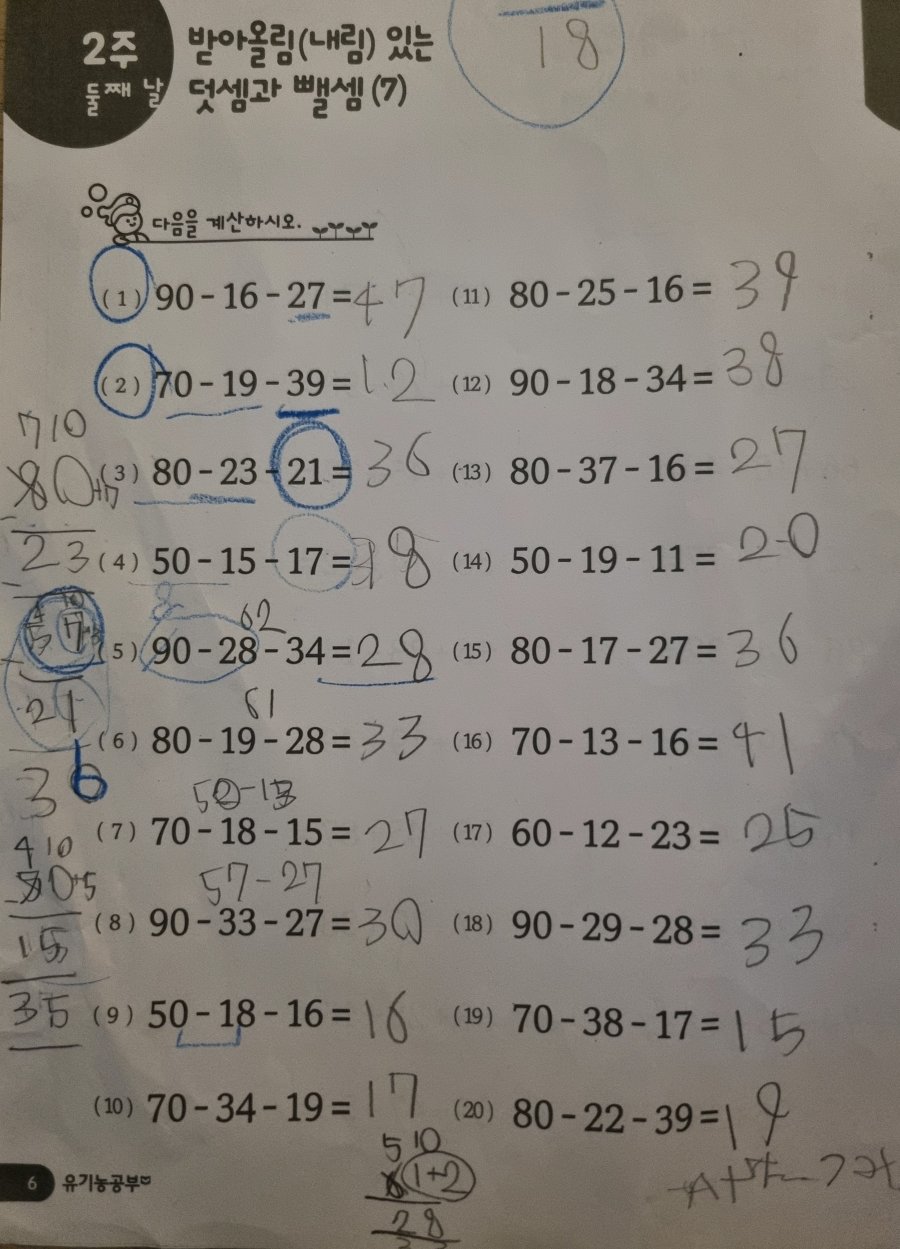 18
2주
둘째 날
받아올림(내림) 있는
덧셈과 뺄셈 (7)
다음을 계산하시오.
(1) 90 - 16 - 27 = 47
(2) 70 - 19 - 39 = 12
(3) 80 - 23 - 21 = 36
(4) 50 - 15 - 17 = 18
62
(5) 90 - 28 - 34 = 28
61
(6) 80 - 19 - 28 = 33
(7) 70 - 18 - 15 = 27
57-27
(8) 90 - 33 - 27 = 30
(9) 50 - 18 - 16 = 16
(10) 70 - 34 - 19 = 17
(11) 80 - 25 - 16 = 39
(12) 90 - 18 - 34 = 38
(13) 80 - 37 - 16 = 27
(14) 50 - 19 - 11 = 20
(15) 80 - 17 - 27 = 36
(16) 70 - 13 - 16 = 41
(17) 60 - 12 - 23 = 25
(18) 90 - 29 - 28 = 33
(19) 70 - 38 - 17 = 15
(20) 80 - 22 - 39 = 19
7 10
80+7
23
57
21
36
4 10
50+5
15
35
5 10
6 1+2
28
6 유기농공부